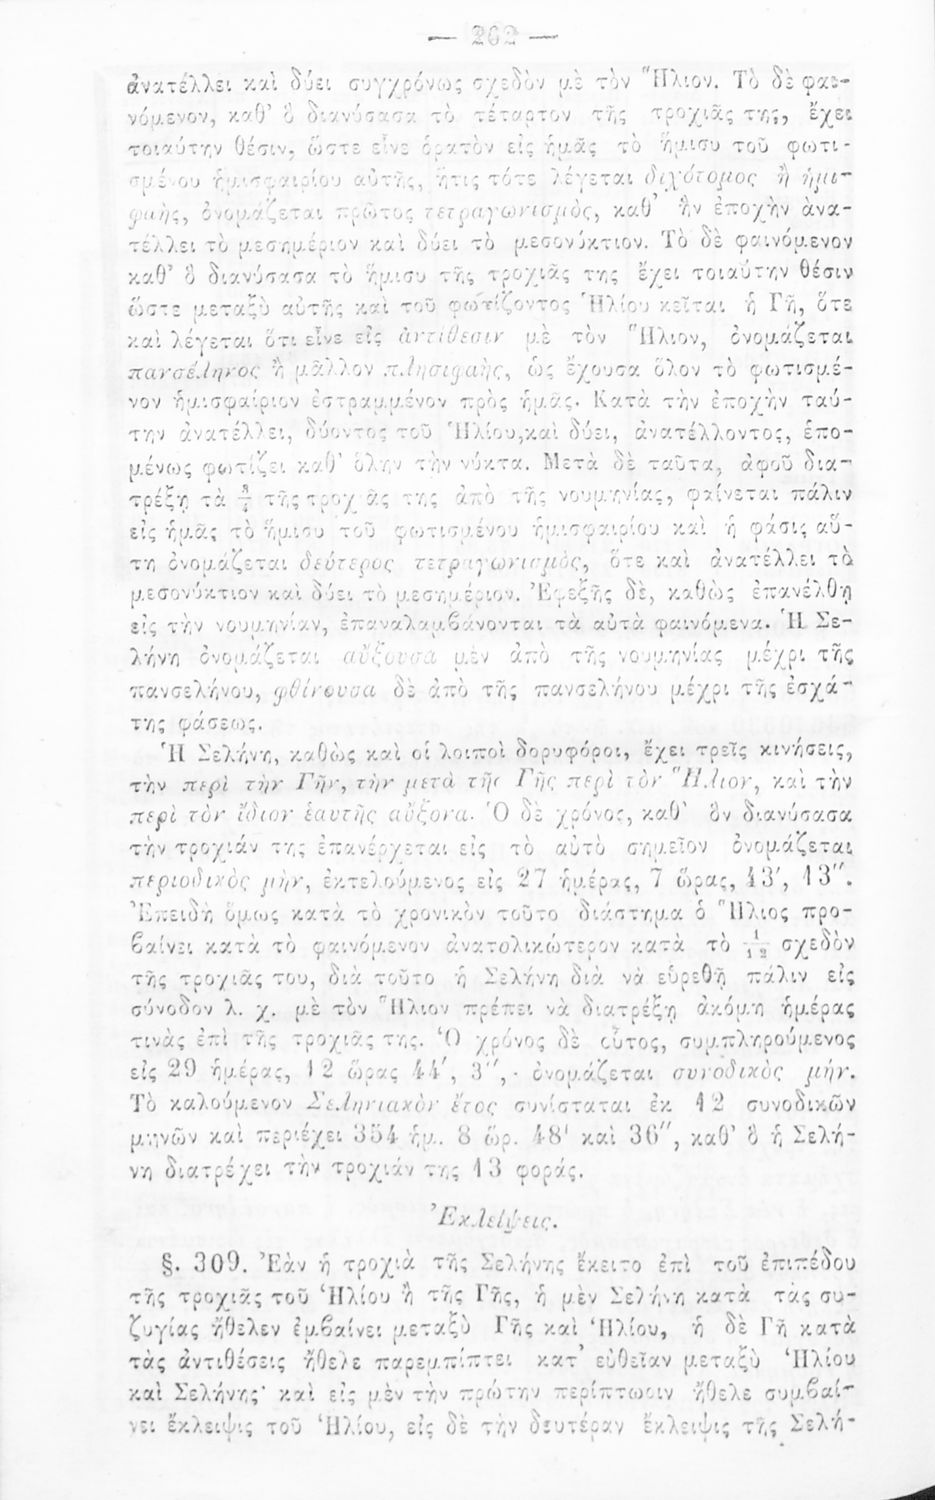 — 262 —
ἀνατέλλει καὶ δύει συγχρόνως σχεδὸν μὲ τὸν Ἥλιον. Τὸ δὲ φαι-
νόμενον, καθ' ὃ διανύσασα τὸ τέταρτον τῆς τροχιᾶς της, ἔχει
τοιαύτην θέσιν, ὥστε εἶνε ὁρατὸν εἰς ἡμᾶς τὸ ἥμισυ τοῦ φωτι-
σμένου ἡμισφαιρίου αὐτῆς, ἥτις τότε λέγεται διχότομος ἢ ἡμι-
φαὴς, ὀνομάζεται πρῶτος τετραγωνισμὸς, καθ' ἣν ἐποχὴν ἀνα-
τέλλει τὸ μεσημέριον καὶ δύει τὸ μεσονύκτιον. Τὸ δὲ φαινόμενον
καθ' ὃ διανύσασα τὸ ἥμισυ τῆς τροχιᾶς της ἔχει τοιαύτην θέσιν
ὥστε μεταξὺ αὐτῆς καὶ τοῦ φωτίζοντος Ἡλίου κεῖται ἡ Γῆ, ὅτε
καὶ λέγεται ὅτι εἶνε εἰς ἀντίθεσιν μὲ τὸν Ἥλιον, ὀνομάζεται
πανσέληνος ἢ μᾶλλον πλησιφαὴς, ὡς ἔχουσα ὅλον τὸ φωτισμέ-
νον ἡμισφαίριον ἐστραμμένον πρὸς ἡμᾶς. Κατὰ τὴν ἐποχὴν ταύ-
την ἀνατέλλει, δύοντος τοῦ Ἡλίου,καὶ δύει, ἀνατέλλοντος, ἑπο-
μένως φωτίζει καθ' ὅλην τὴν νύκτα. Μετὰ δὲ ταῦτα, ἀφοῦ δια-
τρέξῃ τὰ 3/4 τῆς τροχιᾶς της ἀπὸ τῆς νουμηνίας, φαίνεται πάλιν
εἰς ἡμᾶς τὸ ἥμισυ τοῦ φωτισμένου ἡμισφαιρίου καὶ ἡ φάσις αὕ-
τη ὀνομάζεται δεύτερος τετραγωνισμὸς, ὅτε καὶ ἀνατέλλει τὸ
μεσονύκτιον καὶ δύει τὸ μεσημέριον. Ἐφεξῆς δὲ, καθὼς ἐπανέλθῃ
εἰς τὴν νουμηνίαν, ἐπαναλαμβάνονται τὰ αὐτὰ φαινόμενα. Ἡ Σε-
λήνη ὀνομάζεται αὔξουσα μὲν ἀπὸ τῆς νουμηνίας μέχρι τῆς
πανσελήνου, φθίνουσα δὲ ἀπὸ τῆς πανσελήνου μέχρι τῆς ἐσχά-
της φάσεως.
Ἡ Σελήνη, καθὼς καὶ οἱ λοιποὶ δορυφόροι, ἔχει τρεῖς κινήσεις,
τὴν περὶ τὴν Γῆν, τὴν μετὰ τῆς Γῆς περὶ τὸν Ἥλιον, καὶ τὴν
περὶ τὸν ἴδιον ἑαυτῆς αὔξονα. Ὁ δὲ χρόνος, καθ' ὃν διανύσασα
τὴν τροχιάν της ἐπανέρχεται εἰς τὸ αὐτὸ σημεῖον ὀνομάζεται
περιοδικὸς μὴν, ἐκτελούμενος εἰς 27 ἡμέρας, 7 ὥρας, 43', 13".
Ἐπειδὴ ὅμως κατὰ τὸ χρονικὸν τοῦτο διάστημα ὁ Ἥλιος προ-
βαίνει κατὰ τὸ φαινόμενον ἀνατολικώτερον κατὰ τὸ 1/12 σχεδὸν
τῆς τροχιᾶς του, διὰ τοῦτο ἡ Σελήνη διὰ νὰ εὑρεθῇ πάλιν εἰς
σύνοδον λ. χ. μὲ τὸν Ἥλιον πρέπει νὰ διατρέξῃ ἀκόμη ἡμέρας
τινὰς ἐπὶ τῆς τροχιᾶς της. Ὁ χρόνος δὲ οὗτος, συμπληρούμενος
εἰς 29 ἡμέρας, 12 ὥρας 44', 3", ὀνομάζεται συνοδικὸς μήν.
Τὸ καλούμενον Σεληνιακὸν ἔτος συνίσταται ἐκ 12 συνοδικῶν
μηνῶν καὶ περιέχει 354 ἡμ. 8 ὡρ. 48' καὶ 36", καθ' ὃ ἡ Σελή-
νη διατρέχει τὴν τροχιάν της 13 φοράς.
Ἐκλείψεις.
§. 309. Ἐὰν ἡ τροχιὰ τῆς Σελήνης ἔκειτο ἐπὶ τοῦ ἐπιπέδου
τῆς τροχιᾶς τοῦ Ἡλίου ἢ τῆς Γῆς, ἡ μὲν Σελήνη κατὰ τὰς συ-
ζυγίας ἤθελεν ἐμβαίνει μεταξὺ Γῆς καὶ Ἡλίου, ἡ δὲ Γῆ κατὰ
τὰς ἀντιθέσεις ἤθελε παρεμπίπτει κατ' εὐθεῖαν μεταξὺ Ἡλίου
καὶ Σελήνης· καὶ εἰς μὲν τὴν πρώτην περίπτωσιν ἤθελε συμβαί-
νει ἔκλειψις τοῦ Ἡλίου, εἰς δὲ τὴν δευτέραν ἔκλειψις τῆς Σελή-